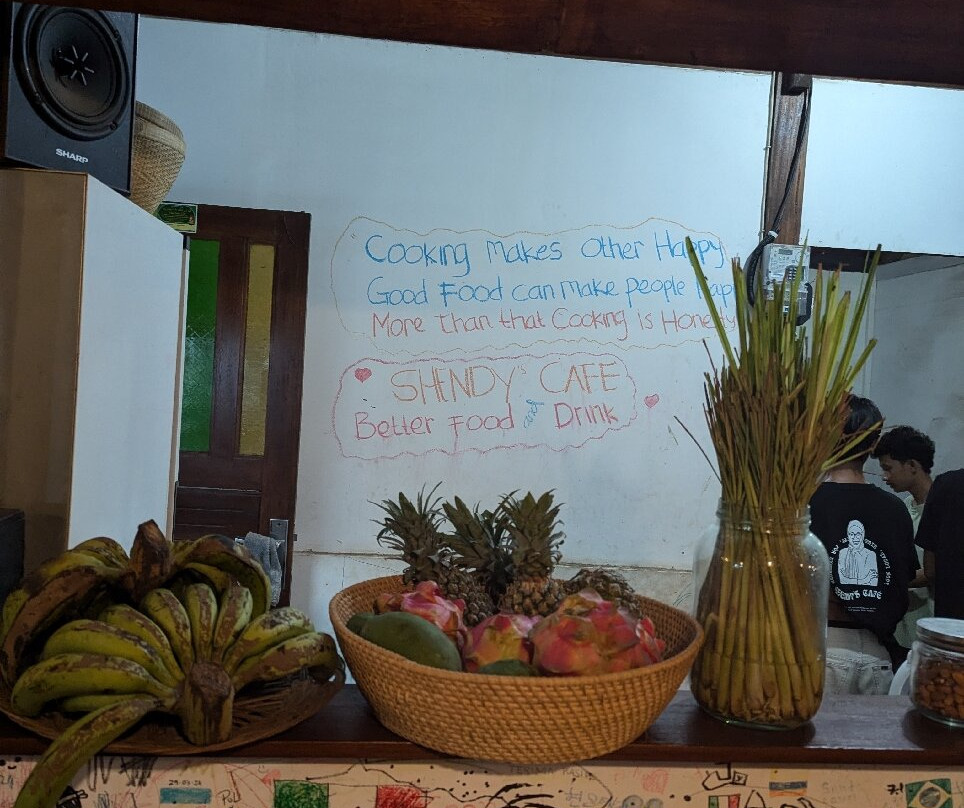 SHARP
Cooking Makes Other Happy
Good Food can make people
More Than that Cooking is Honesty
SHENDY'S CAFE
Better Food & Drink
SHENDY'S CAFE